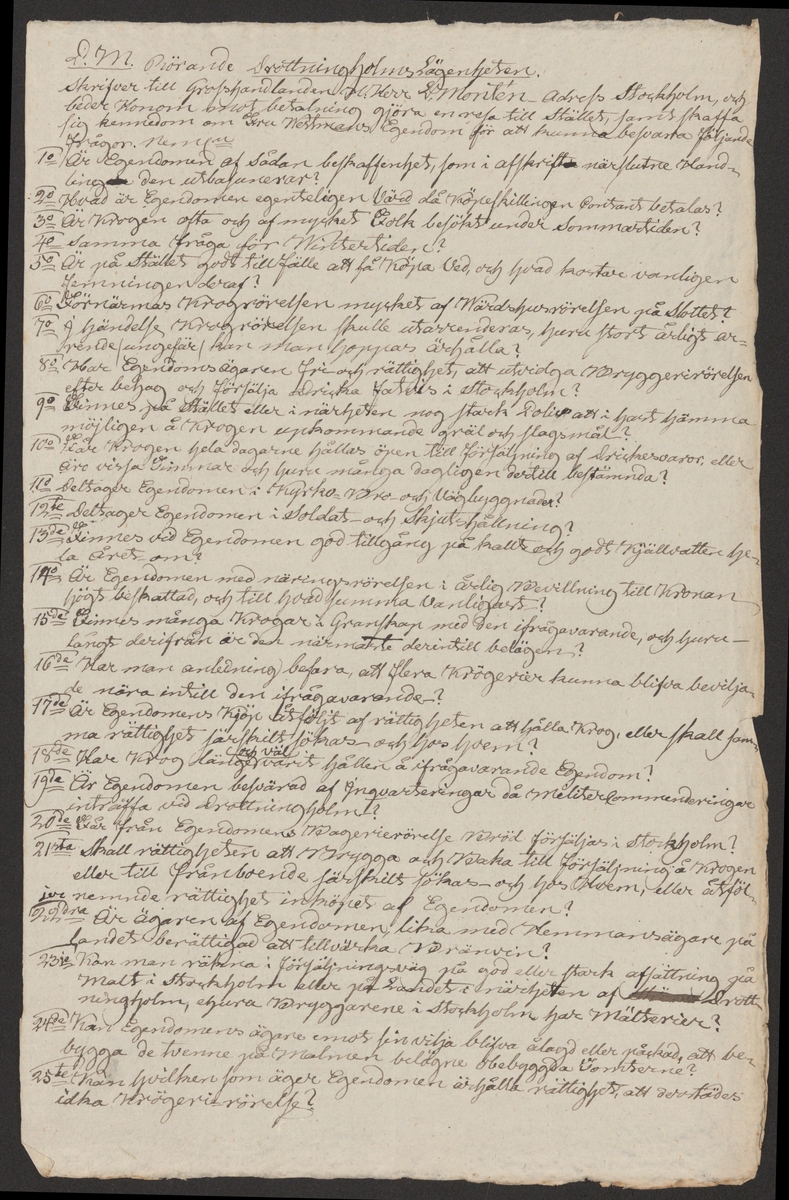 D. M. Rörande Drottningholms Lägenheten.
Skrifver till Grosshandlanden H. Herr D. Montén – adress Stockholm, och
beder Honom emot betalning gjöra en resa till Stället, samt skaffa
sig kennedom om Fru Westmans Egendom för att kunna besvara följande
Frågor. Nemln
1o Är Egendomen af sådan beskaffenhet, som i afskrift närslutne Hand-
ling den utbasunerar?
2o Hvad är Egendomen egenteligen Värd då Köpeskillingen Contant betalas?
3o Är Krogen ofta och af mycket Folk besökt under Sommartiden?
4o Samma fråga för Wintertiden?
5o Är på Stället godt tillfälle att få Köpa Ved, och hvad kostar vanligen
Femningen deraf?
6o Förnärmas Krogrörelsen mycket af Wärdshusrörelsen på Slottet?
7o I händelse Krogrörelsen skulle utarrenderas, huru stort årligt ar-
rende (ungefär) kan man hoppas ärhålla?
8o Har Egendoms ägaren fri och rättighet, att utvidga Bryggerirörelsen
efter behag och försälja dricka fatvis i Stockholm?
9o Finnes på Stället eller i närheten nog stark Polis att i hast hämma
möjligen å Krogen upkommande gräl och slagsmål?
10o Får Krogen hela dagarne hållas öpen till försäljning af Drickesvaror, eller
äro vissa Timmar och huru många dagligen dertill bestämnda?
11o Deltager Egendomen i Kyrko- Bro- och Vägbyggnader?
12te Deltager Egendomen i Soldat- och Skjutshållning?
13de Finnes vid Egendomen god tillgång på kallt och godt Kjällvatten he-
la Året om?
14o Är Egendomen med näringsrörelsen i årlig Bevillning till Kronan
högt beskattad, och till hvad summa Vanligast?
15de Finnes många Krogar i Granskap med den ifrågavarande, och huru-
långt derifrån är den närmaste derintill belägen?
16de Har man anledning befara, att flera Krögerier kunna blifva bevilja-
de nära intill den ifrågavarande?
17de Är Egendomens Kjöp åtföljt af rättigheten att hålla Krog, eller skall sam-
ma rättighet särskilt sökas – och hos hvem?
18de Har Krog länge och väl varit hållen å ifrågavarande Egendom?
19de Är Egendomen besvärad af Inqvarteringar då Militer Commenderingar
inträffa vid Drottningholm?
20de Får från Egendomens Bagerierörelse Bröd försäljas i Stockholm?
21sta Skall rättigheten att Brygga och Baka till försäljning å Krogen
eller till frånboende särskilt sökas – och hos Hvem, eller åtföl-
jer nemnde rättighet inköpet af Egendomen?
22dra Är ägaren af Egendomen, lika med Hemmansägare på
Landet berättigad att tillvärka Bränvin?
23je Kan man räkna i försäljningsväg på god eller stark afsättning på
Malt i Stockholm eller på Landet i närheten af Drott-
ningholm, ehuru Bryggarene i Stockholm har Mälterier?
24de Kan Egendomens ägare emot sin vilja blifva ålagd eller påskad, att be-
bygga de tvenne på Malmen belägne obebyggda Tomterne?
25te Kan hvilken som äger Egendomen ärhålla rättighet, att derstädes
idka Krögerierörelse?